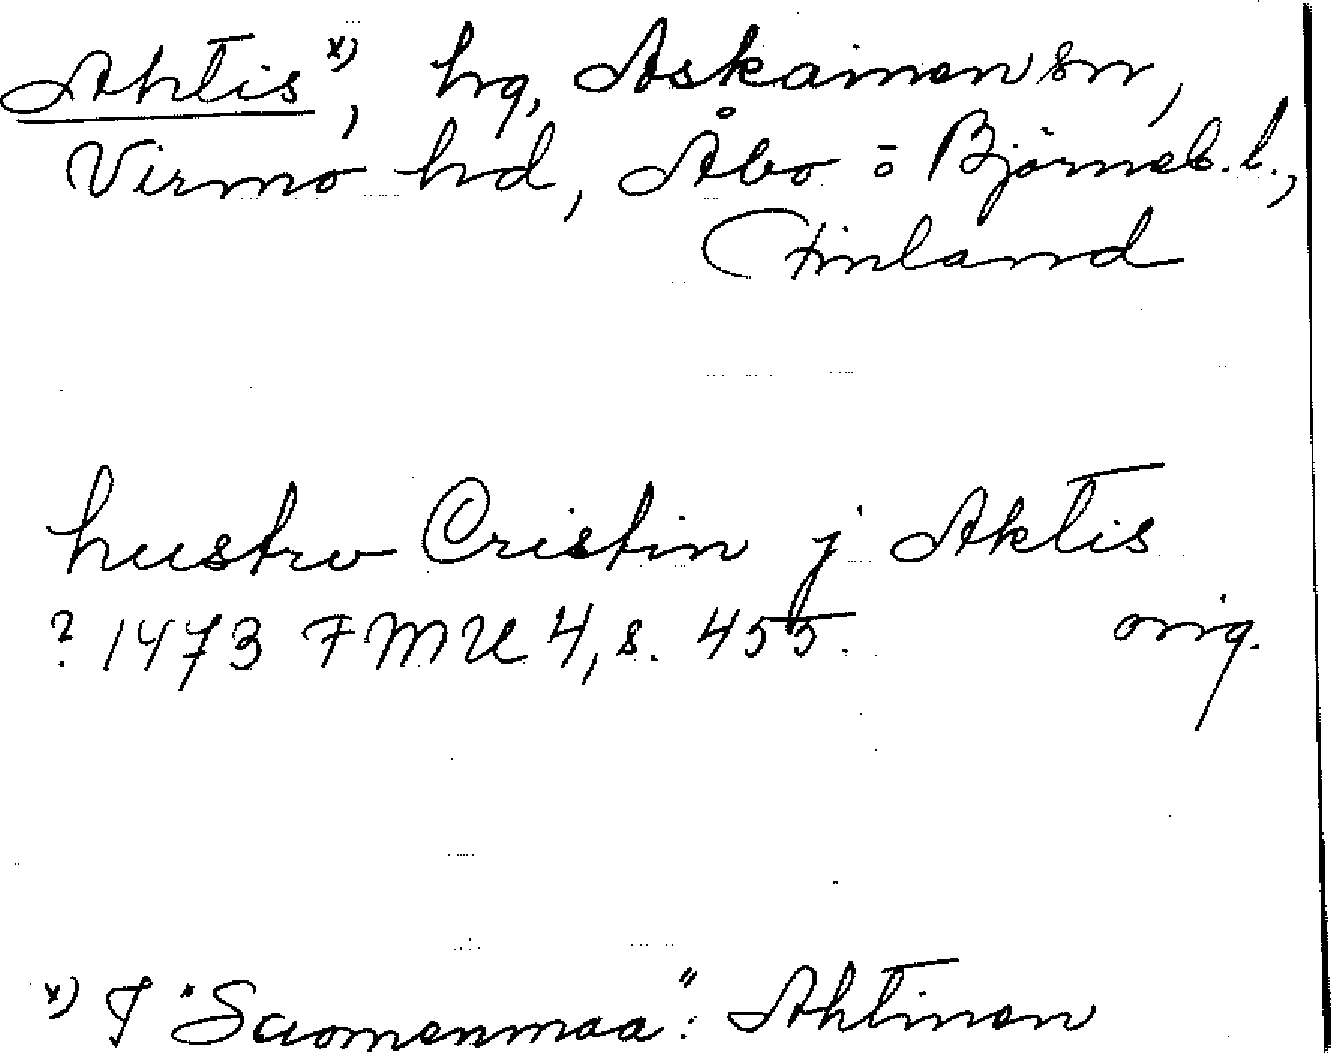 Ahtis x), hg, Askainen sn,
Virmo hd, Åbo o Björneb. l.,
Finland
hustrv Cristin j Aktis
? 1473 FMU 4, s. 455. orig.
x) I "Suomenmaa": Ahtinen